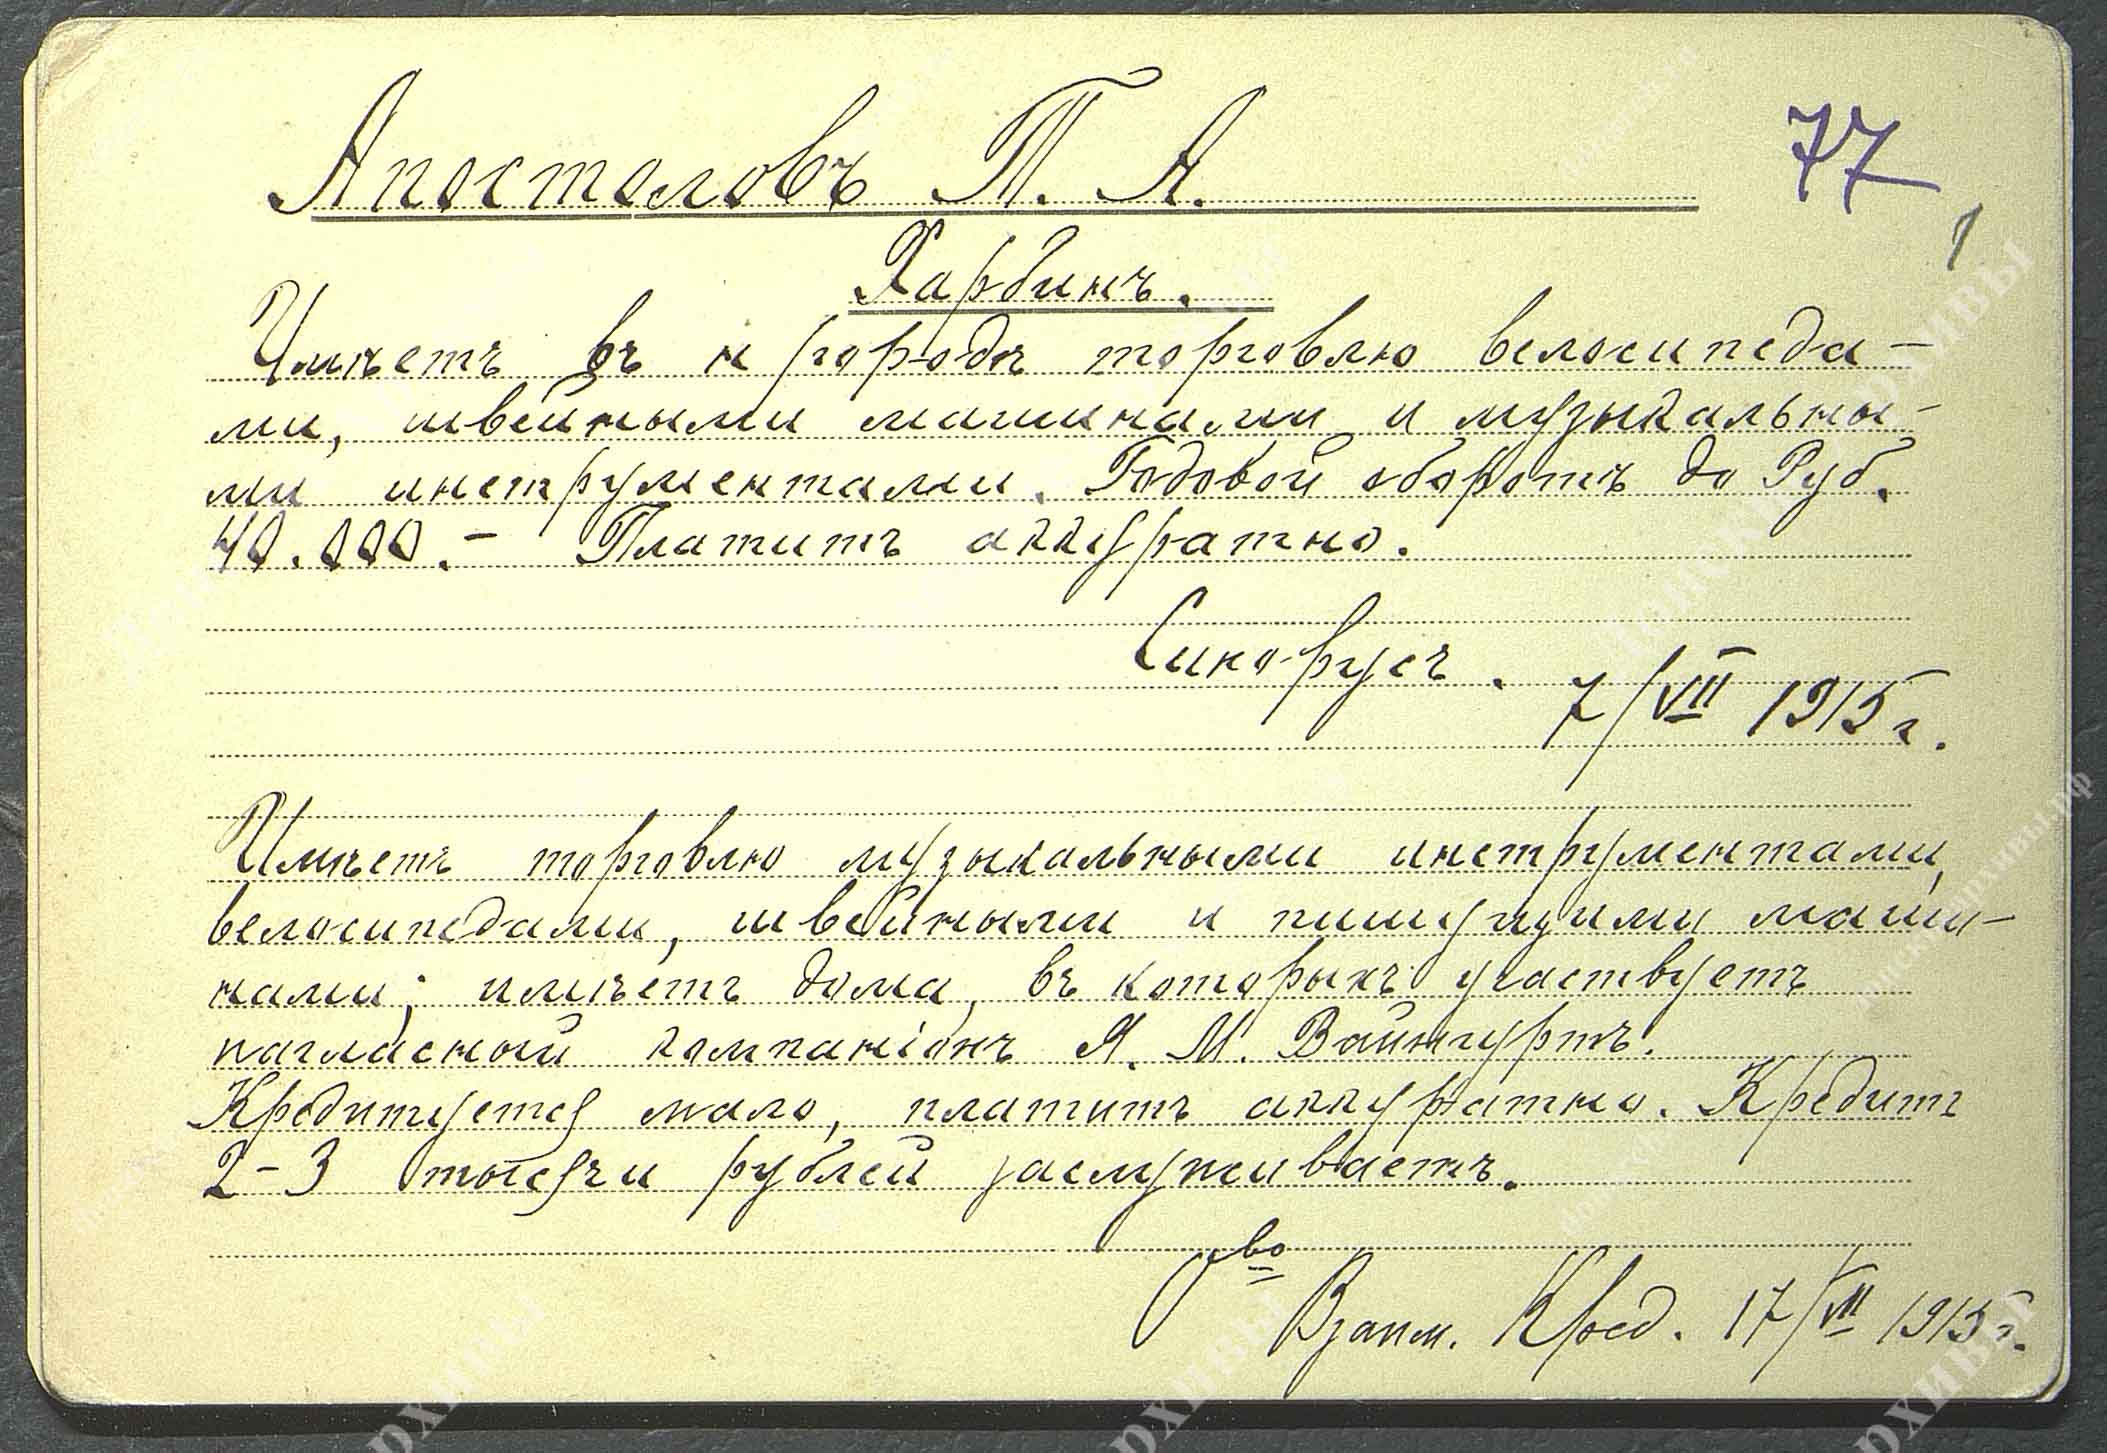 Апостоловъ П. А.
77
1
Харбинъ.
Имѣетъ въ н/городѣ торговлю велосипеда-
ми, швейными машинами и музыкальны-
ми инструментами. Годовой оборотъ до Руб.
40.000.- Платитъ аккуратно.
Сино-Русъ. 7/VII 1915 г.
Имѣетъ торговлю музыкальными инструментами,
велосипедами, швейными и пишущими маши-
нами; имѣетъ дома, въ которыхъ участвуетъ
негласный компаніонъ Я. М. Вайнгуртъ.
Кредитуется мало, платитъ аккуратно. Кредитъ
2-3 тысячи рублей заслуживаетъ.
О-во Взаим. Кред. 17/VII 1915 г.